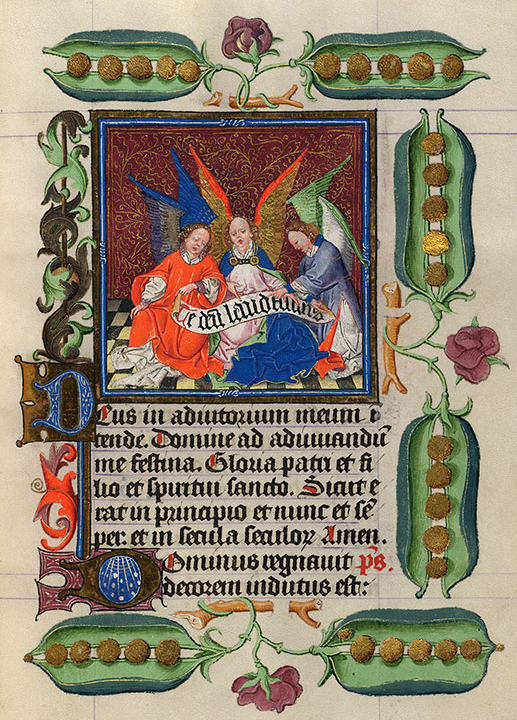 e deū laudamus
Deus in adiutorium meum ī
tende. Domine ad adiuuandū
me festina. Gloria patri et fi
lio et spiritui sancto. Sicut e
rat in principio et nunc et sē
per: et in secula seculoꝝ Amen.
Dominus regnauit p̄s.
decorem indutus est: